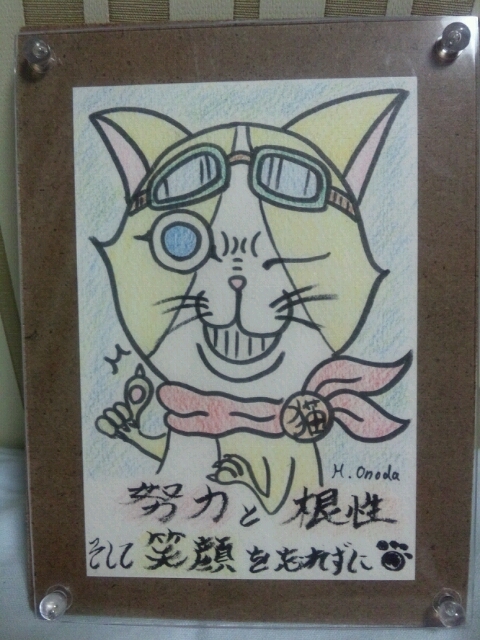 猫
H. Onoda
努力と根性
そして笑顔を忘れずに